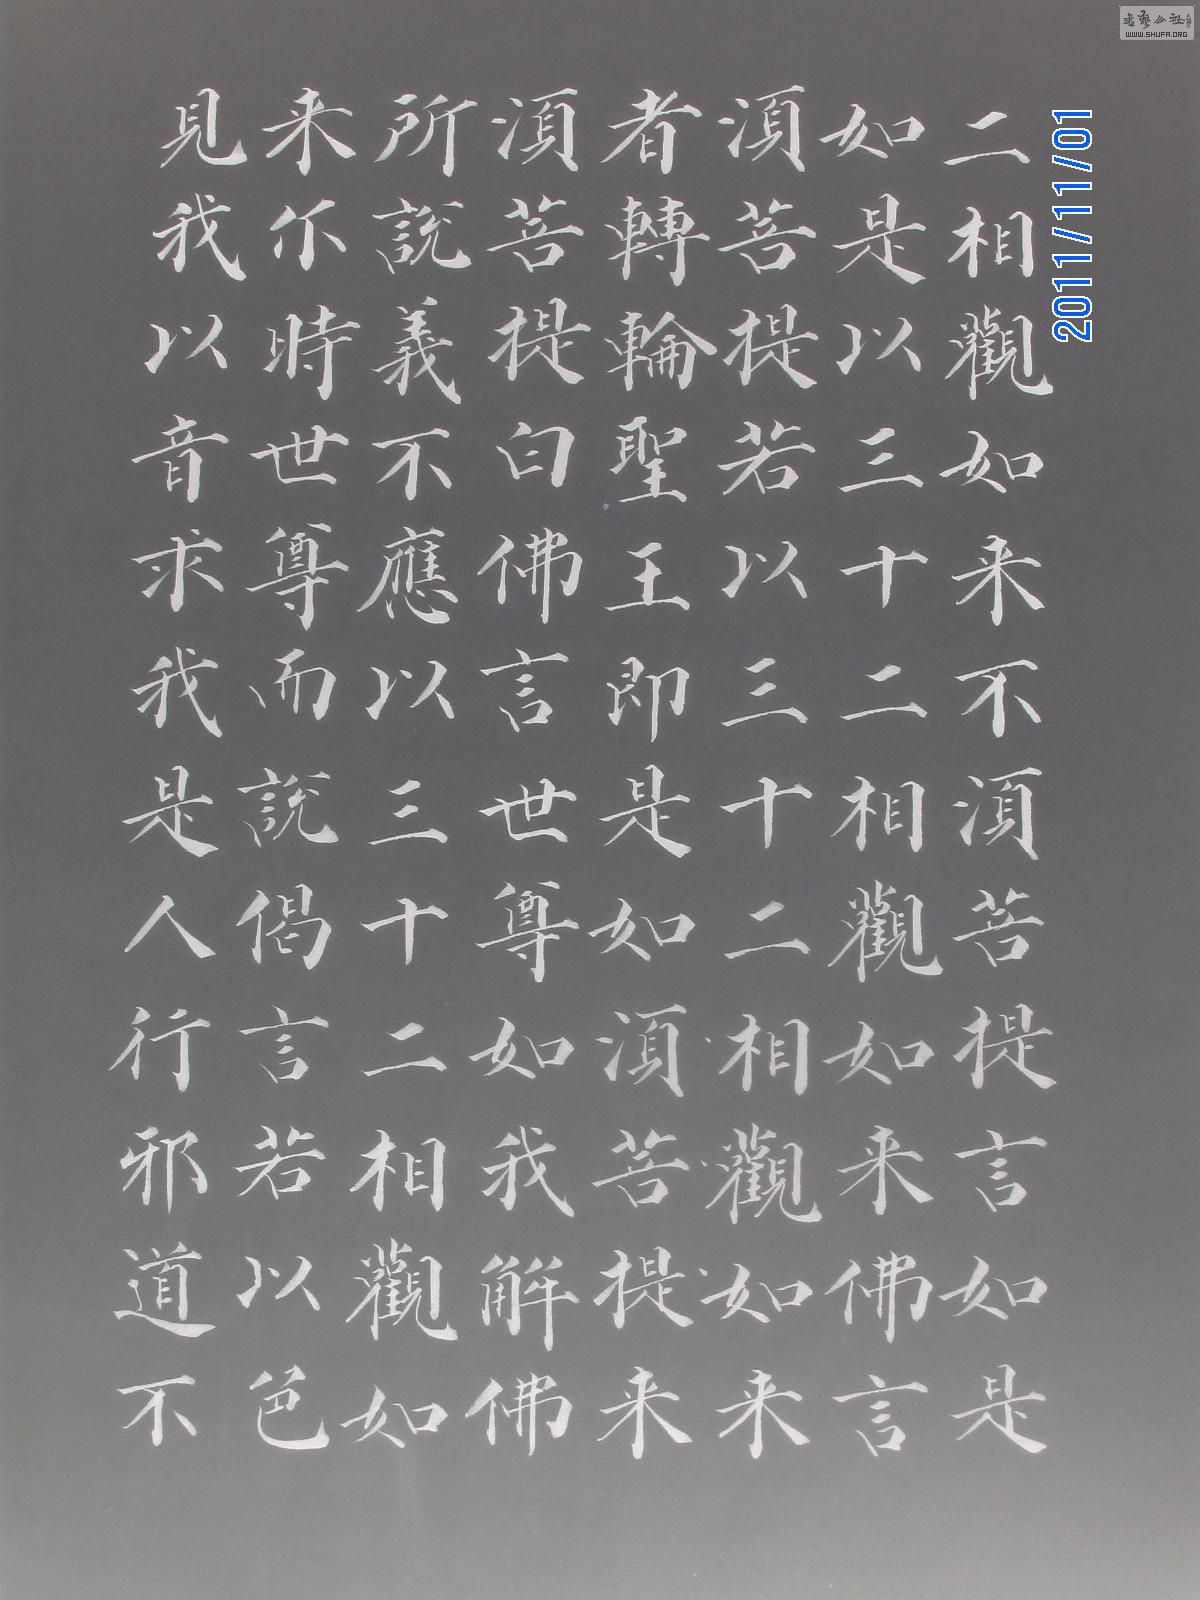 二相觀如来不湏菩提言如是
如是以三十二相觀如来佛言
湏菩提若以三十二相觀如来
者轉輪聖王即是如湏菩提来
湏菩提白佛言世尊如我解佛
所說義不應以三十二相觀如
来尒時世尊而說偈言若以色
見我以音求我是人行邪道不
2011/11/01
書藝公社
WWW.SHUFA.ORG